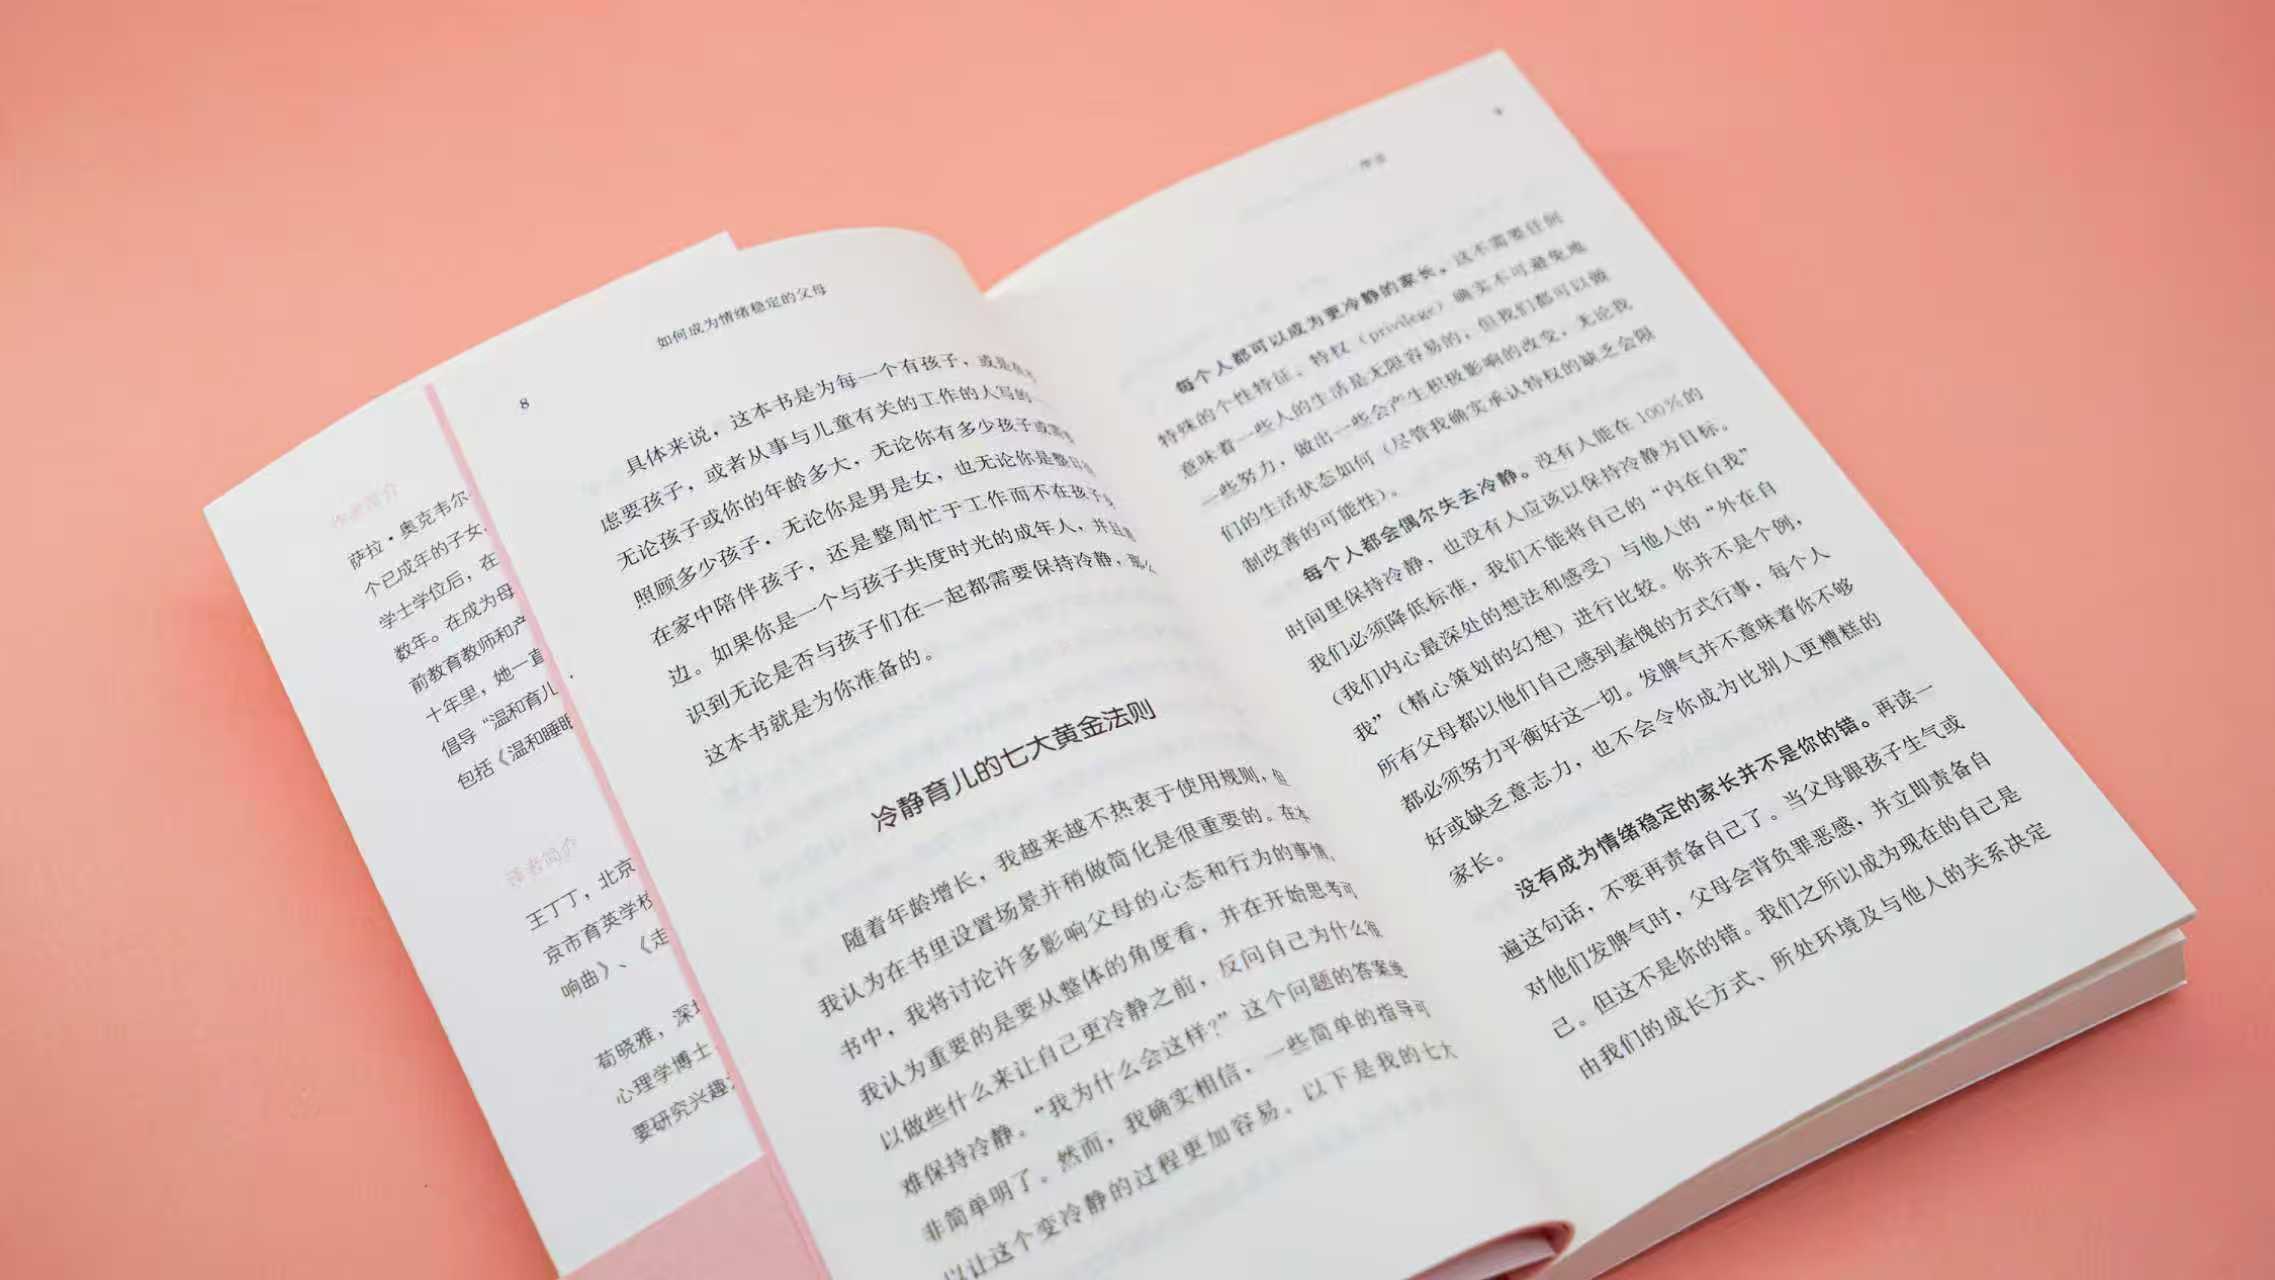 作者简介
萨拉·奥克韦尔
个已成年的子女
学士学位后，在
数年。在成为母
前教育教师和产
十年里，她一直
倡导“温和育儿
包括《温和睡眠
译者简介
王丁丁，北京
京市育英学校
响曲》、《走
荀晓雅，深圳
心理学博士
要研究兴趣
如何成为情绪稳定的父母
8
具体来说，这本书是为每一个有孩子，或是
虑要孩子，或者从事与儿童有关的工作的人写的
无论孩子或你的年龄多大，无论你有多少孩子或需要
照顾多少孩子，无论你是男是女，也无论你是整日
在家中陪伴孩子，还是整周忙于工作而不在孩子身
边。如果你是一个与孩子共度时光的成年人，并且
识到无论是否与孩子们在一起都需要保持冷静，那么
这本书就是为你准备的。
冷静育儿的七大黄金法则
随着年龄增长，我越来越不热衷于使用规则，但
我认为在书里设置场景并稍做简化是很重要的。在本
书中，我将讨论许多影响父母的心态和行为的事情。
我认为重要的是要从整体的角度看，并在开始思考可
以做些什么来让自己更冷静之前，反问自己为什么很
难保持冷静。“我为什么会这样？”这个问题的答案绝
非简单明了。然而，我确实相信，一些简单的指导可
以让这个变冷静的过程更加容易。以下是我的七大
序言
9
每个人都可以成为更冷静的家长。这不需要任何
特殊的个性特征。特权（privilege）确实不可避免地
意味着一些人的生活是无限容易的，但我们都可以做
一些努力，做出一些会产生积极影响的改变，无论我
们的生活状态如何（尽管我确实承认特权的缺乏会限
制改善的可能性）。
每个人都会偶尔失去冷静。没有人能在 100%的
时间里保持冷静，也没有人应该以保持冷静为目标。
我们必须降低标准，我们不能将自己的“内在自我”
（我们内心最深处的想法和感受）与他人的“外在自
我”（精心策划的幻想）进行比较。你并不是个例，
所有父母都以他们自己感到羞愧的方式行事，每个人
都必须努力平衡好这一切。发脾气并不意味着你不够
好或缺乏意志力，也不会令你成为比别人更糟糕的
家长。
没有成为情绪稳定的家长并不是你的错。再读一
遍这句话，不要再责备自己了。当父母跟孩子生气或
对他们发脾气时，父母会背负罪恶感，并立即责备自
己。但这不是你的错。我们之所以成为现在的自己是
由我们的成长方式、所处环境及与他人的关系决定